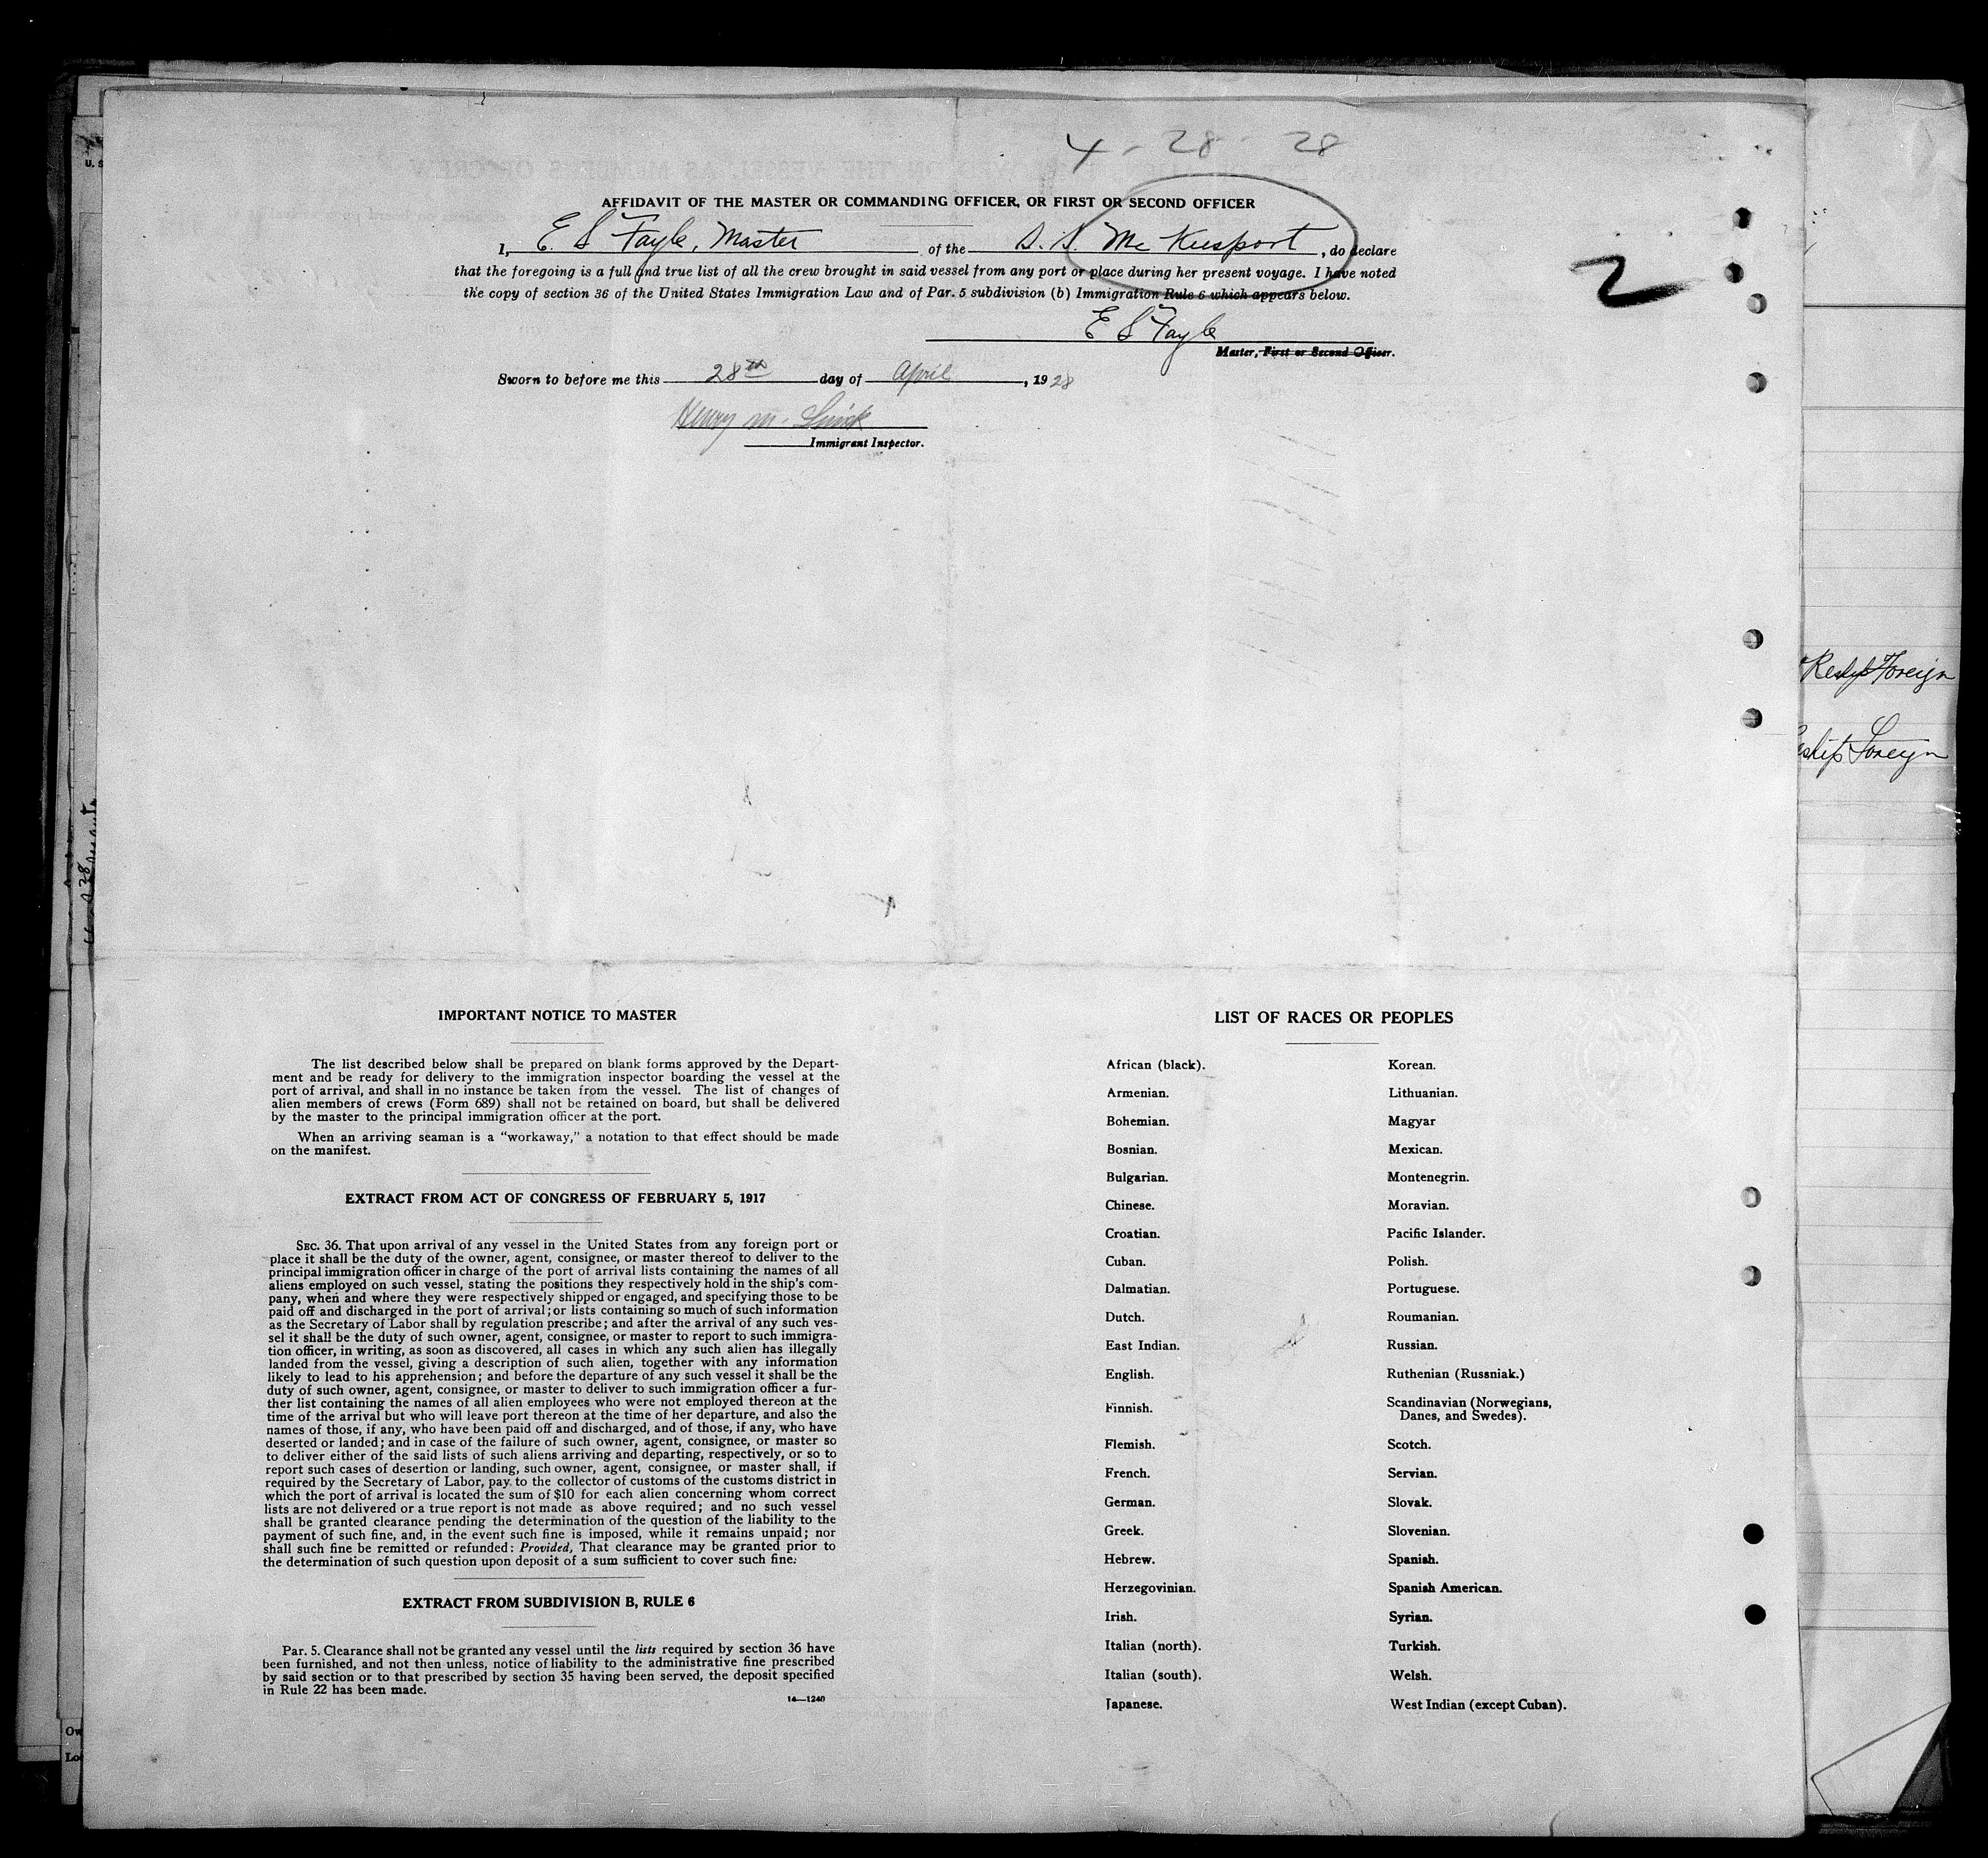 4 - 28 - 28
AFFIDAVIT OF THE MASTER OR COMMANDING OFFICER, OR FIRST OR SECOND OFFICER
I, E. S Fayle, Master of the S. S. Mc Keesport, do declare
that the foregoing is a full and true list of all the crew brought in said vessel from any port or place during her present voyage. I have noted
the copy of section 36 of the United States Immigration Law and of Par. 5 subdivision (b) Immigration Rule 6 which appears below.
2
E S Fayle
Master, First or Second Officer.
Sworn to before me this 28th day of April, 1928
Henry M.
Immigrant Inspector.
Foreign
Foreign
IMPORTANT NOTICE TO MASTER
The list described below shall be prepared on blank forms approved by the Depart-
ment and be ready for delivery to the immigration inspector boarding the vessel at the
port of arrival, and shall in no instance be taken from the vessel. The list of changes of
alien members of crews (Form 689) shall not be retained on board, but shall be delivered
by the master to the principal immigration officer at the port.
When an arriving seaman is a "workaway," a notation to that effect should be made
on the manifest.
EXTRACT FROM ACT OF CONGRESS OF FEBRUARY 5, 1917
SEC. 36. That upon arrival of any vessel in the United States from any foreign port or
place it shall be the duty of the owner, agent, consignee, or master thereof to deliver to the
principal immigration officer in charge of the port of arrival lists containing the names of all
aliens employed on such vessel, stating the positions they respectively hold in the ship's com-
pany, when and where they were respectively shipped or engaged, and specifying those to be
paid off and discharged in the port of arrival; or lists containing so much of such information
as the Secretary of Labor shall by regulation prescribe; and after the arrival of any such ves-
sel it shall be the duty of such owner, agent, consignee, or master to report to such immigra-
tion officer, in writing, as soon as discovered, all cases in which any such alien has illegally
landed from the vessel, giving a description of such alien, together with any information
likely to lead to his apprehension; and before the departure of any such vessel it shall be the
duty of such owner, agent, consignee, or master to deliver to such immigration officer a fur-
ther list containing the names of all alien employees who were not employed thereon at the
time of the arrival but who will leave port thereon at the time of her departure, and also the
names of those, if any, who have been paid off and discharged, and of those, if any, who have
deserted or landed; and in case of the failure of such owner, agent, consignee, or master so
to deliver either of the said lists of such aliens arriving and departing, respectively, or so to
report such cases of desertion or landing, such owner, agent, consignee, or master shall, if
required by the Secretary of Labor, pay to the collector of customs of the customs district in
which the port of arrival is located the sum of $10 for each alien concerning whom correct
lists are not delivered or a true report is not made as above required; and no such vessel
shall be granted clearance pending the determination of the question of the liability to the
payment of such fine, and, in the event such fine is imposed, while it remains unpaid; nor
shall such fine be remitted or refunded: Provided, That clearance may be granted prior to
the determination of such question upon deposit of a sum sufficient to cover such fine.
EXTRACT FROM SUBDIVISION B, RULE 6
Par. 5. Clearance shall not be granted any vessel until the lists required by section 36 have
been furnished, and not then unless, notice of liability to the administrative fine prescribed
by said section or to that prescribed by section 35 having been served, the deposit specified
in Rule 22 has been made.
14—1240
LIST OF RACES OR PEOPLES
African (black).
Armenian.
Bohemian.
Bosnian.
Bulgarian.
Chinese.
Croatian.
Cuban.
Dalmatian.
Dutch.
East Indian.
English.
Finnish.
Flemish.
French.
German.
Greek.
Hebrew.
Herzegovinian.
Irish.
Italian (north).
Italian (south).
Japanese.
Korean.
Lithuanian.
Magyar
Mexican.
Montenegrin.
Moravian.
Pacific Islander.
Polish.
Portuguese.
Roumanian.
Russian.
Ruthenian (Russniak.)
Scandinavian (Norwegians,
Danes, and Swedes).
Scotch.
Servian.
Slovak.
Slovenian.
Spanish.
Spanish American.
Syrian.
Turkish.
Welsh.
West Indian (except Cuban).